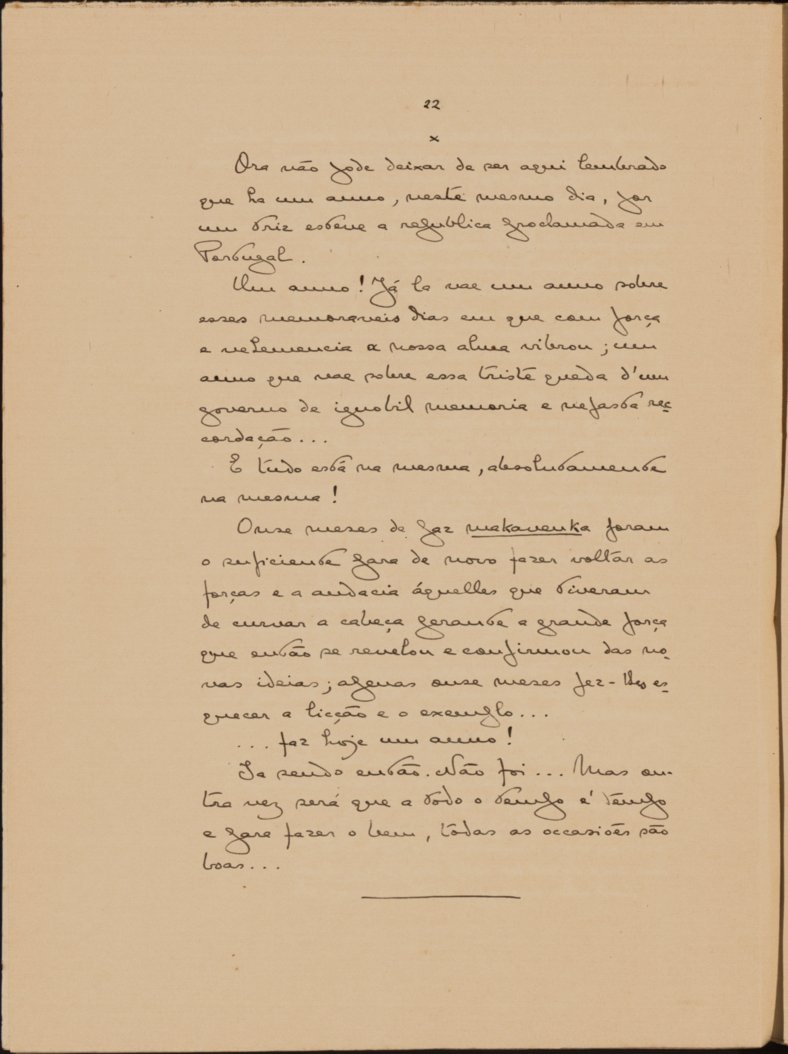 22
x
Ora não pode deixar de ser aqui lembrado
que ha um anno, neste mesmo dia, por
um triz esteve a republica proclamada em
Portugal.
Um anno! Já la vae um anno sobre
esses memoraveis dias em que com força
e vehemencia a nossa alma vibrou; um
anno que vae sobre essa triste queda d'um
governo de ignobil memoria e nefasta re-
cordação...
E tudo está na mesma, absolutamente
na mesma!
Onze meses de paz makavenka foram
o suficiente para de novo fazer voltar as
forças e a audacia áquelles que tiveram
de curvar a cabeça perante a grande força
que então se revelou e confirmou das no-
vas ideias; apenas onze meses fez-lhes es-
quecer a licção e o exemplo...
... faz hoje um anno!
Ia sendo então. Não foi... Mas ou-
tra vez será que a todo o tempo é tempo
e para fazer o bem, todas as occasiões são
boas...